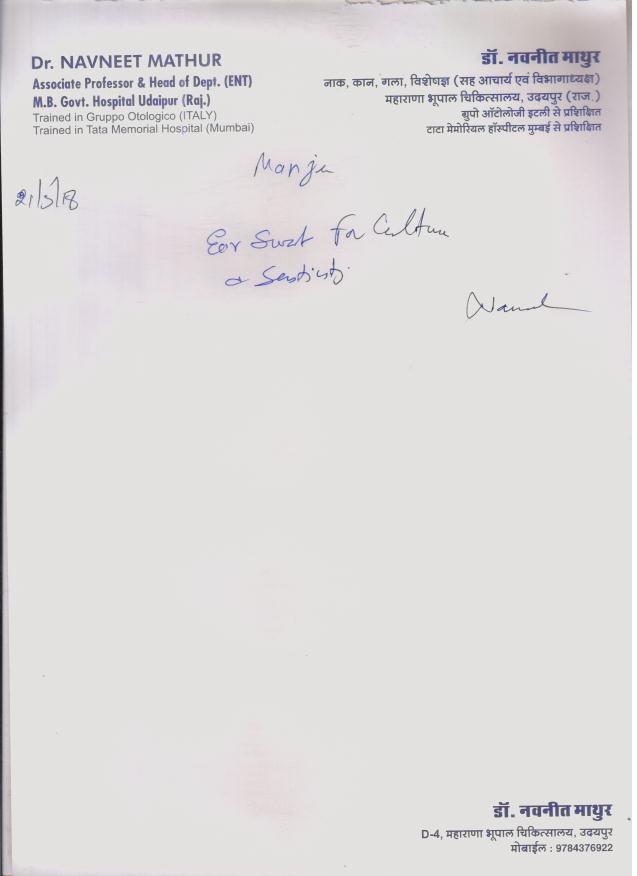 Dr. NAVNEET MATHUR
Associate Professor & Head of Dept. (ENT)
M.B. Govt. Hospital Udaipur (Raj.)
Trained in Gruppo Otologico (ITALY)
Trained in Tata Memorial Hospital (Mumbai)
डॉ. नवनीत माथुर
नाक, कान, गला, विशेषज्ञ (सह आचार्य एवं विभागाध्यक्ष)
महाराणा भूपाल चिकित्सालय, उदयपुर (राज.)
ग्रुपो ऑटोलोजी इटली से प्रशिक्षित
टाटा मेमोरियल हॉस्पीटल मुम्बई से प्रशिक्षित
Manju
21/5/18
Ear Swab For Culture
& Sensitivity
डॉ. नवनीत माथुर
D-4, महाराणा भूपाल चिकित्सालय, उदयपुर
मोबाईल : 9784376922